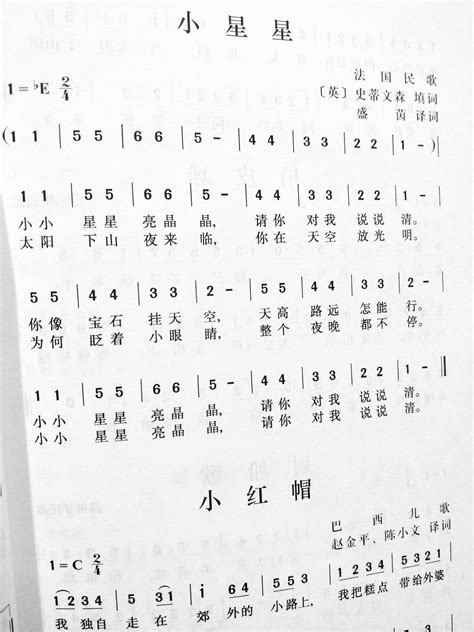 小星星
法国民歌
1=♭E 2/4
〔英〕史蒂文森 填词
盛茵 译词
( 1 1 | 5 5 | 6 6 | 5 - | 4 4 | 3 3 | 2 2 | 1 - )
1 1 | 5 5 | 6 6 | 5 - | 4 4 | 3 3 | 2 2 | 1 - |
小小 星星 亮晶晶, 请你 对我 说说清。
太阳 下山 夜来临, 你在 天空 放光明。
5 5 | 4 4 | 3 3 | 2 - | 5 5 | 4 4 | 3 3 | 2 - |
你像 宝石 挂天空, 天高 路远 怎能行。
为何 眨着 小眼睛, 整个 夜晚 都不停。
1 1 | 5 5 | 6 6 | 5 - | 4 4 | 3 3 | 2 2 | 1 - ‖
小小 星星 亮晶晶, 请你 对我 说说清。
小小 星星 亮晶晶, 请你 对我 说说清。
小红帽
巴西儿歌
1=C 2/4
赵金平、陈小文 译词
1234 | 5 3 1 | i 6 4 | 5 5 3 | 1234 | 5321
我 独自 走在 郊外的 小路上, 我把糕点 带给外婆